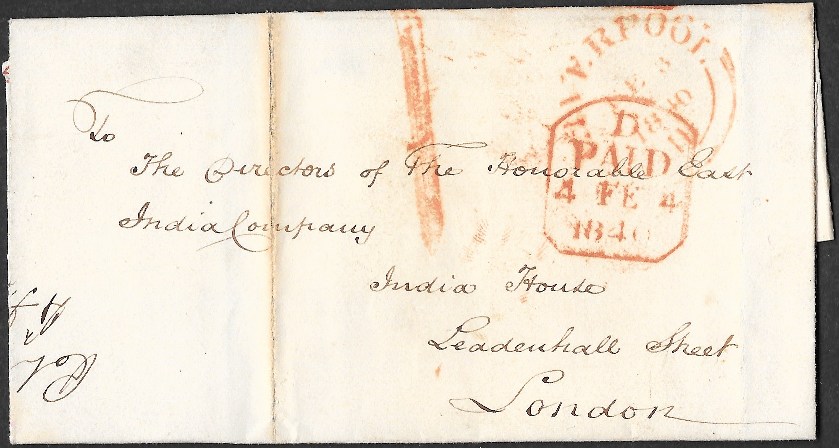 LIVERPOOL
FE 3
1840
D
PAID
4 FE 4
1840
To
The Directors of The Honorable East
India Company
India House
Leadenhall Street
London